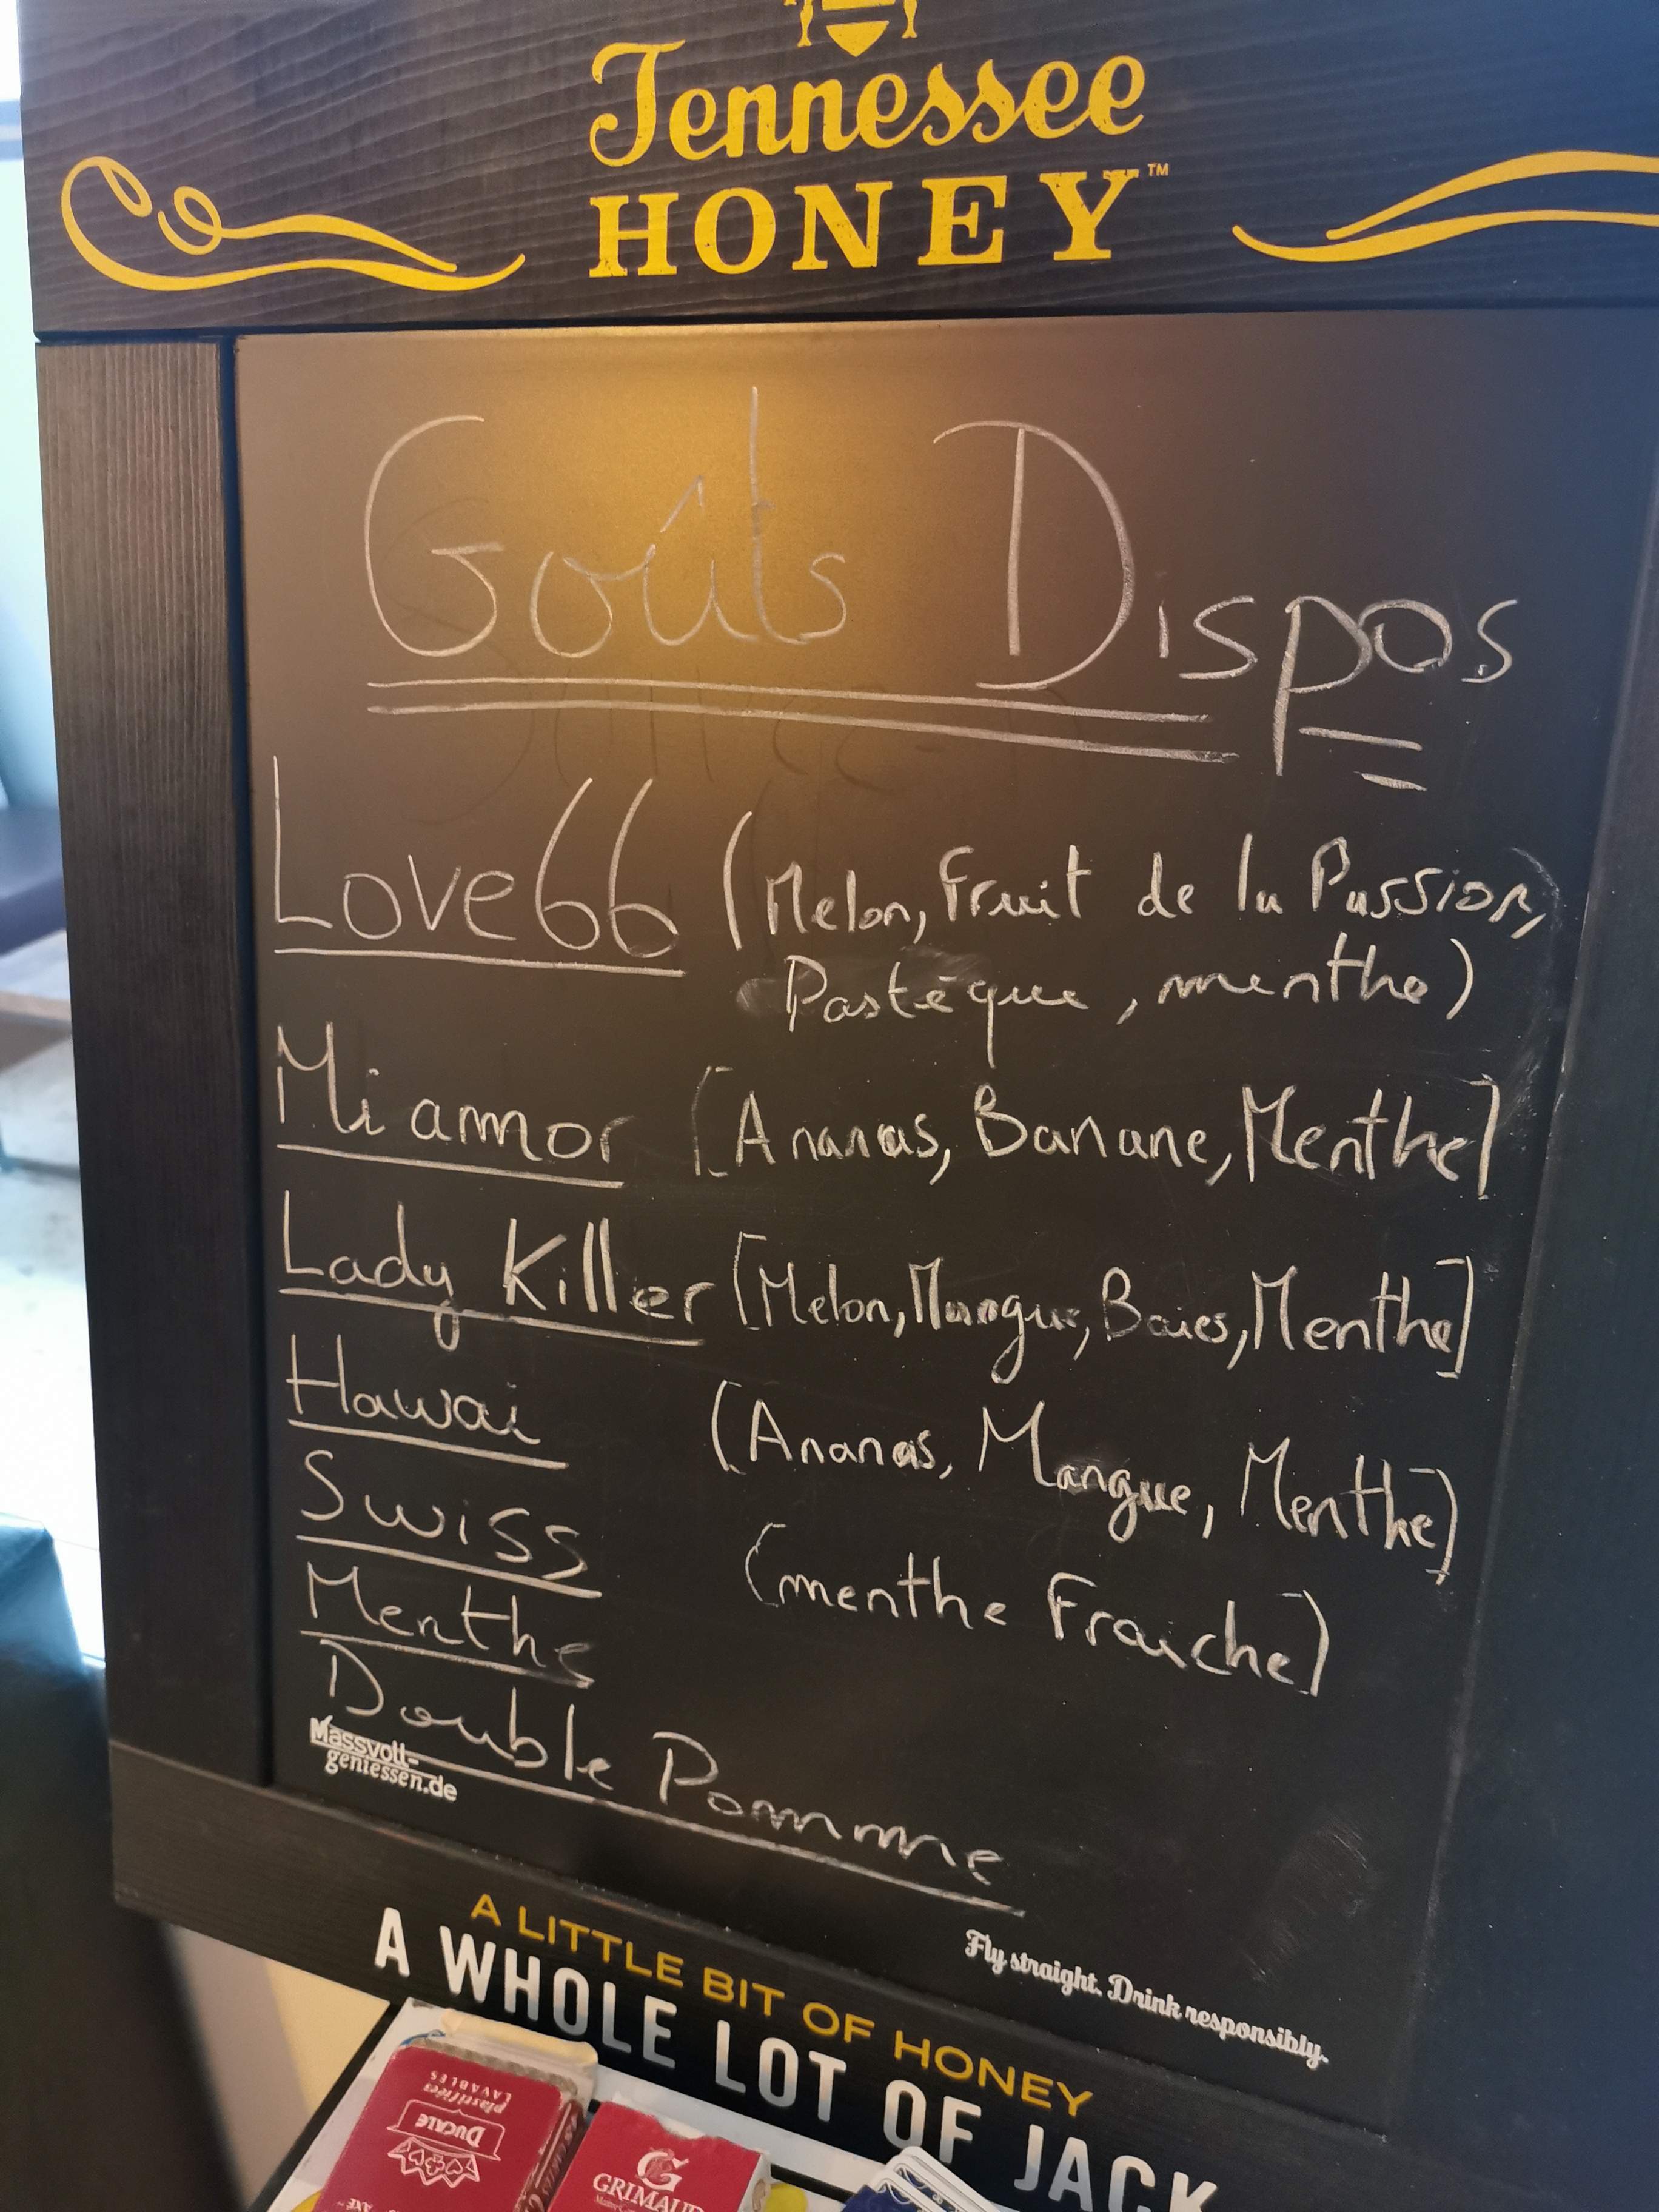 Tennessee
HONEY™
Goûts Dispos
Love66 (Melon, Fruit de la Passion,
Pastèque, menthe)
Mi amor [Ananas, Banane, Menthe]
Lady Killer [Melon, Mangue, Baies, Menthe]
Hawai (Ananas, Mangue, Menthe)
Swiss Menthe (menthe Fraiche)
Double Pomme
Massvoll-
geniessen.de
Fly straight. Drink responsibly.
A LITTLE BIT OF HONEY
A WHOLE LOT OF JACK
plastifiées
LAVABLES
DUCALE
GRIMAUD